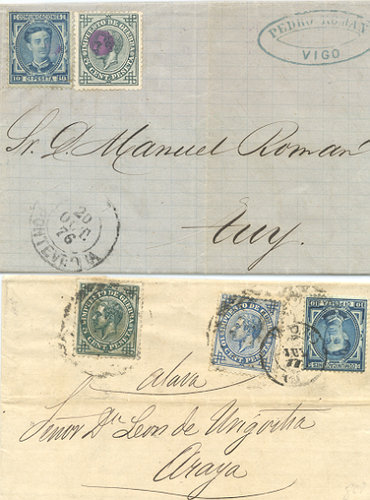 COMUNICACIONES
10 CS PESETA 10
IMPUESTO DE GUERRA
5 CENT. PESETA
PEDRO ROMAN
VIGO
Sr. D. Manuel Roman
Tuy.
PONTEVEDRA
20
OCT
76
IMPUESTO DE GUERRA
CENT. PESETA
IMPUESTO DE
CENT. PESETA
COMUNICACIONES
10 PESETA 10
77
Alava
Señor Dn Leon de Urigoitia
Araya